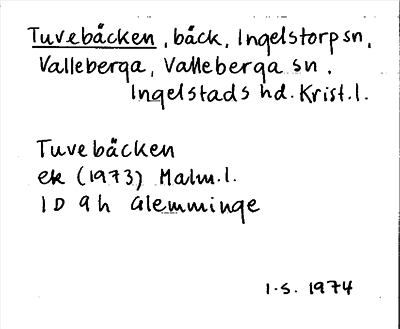 Tuvebäcken, bäck, Ingelstorp sn,
Valleberga, Valleberga sn,
Ingelstads hd. Krist.l.
Tuvebäcken
ek (1973) Malm.l.
1D 9h Glemminge
I.S. 1974